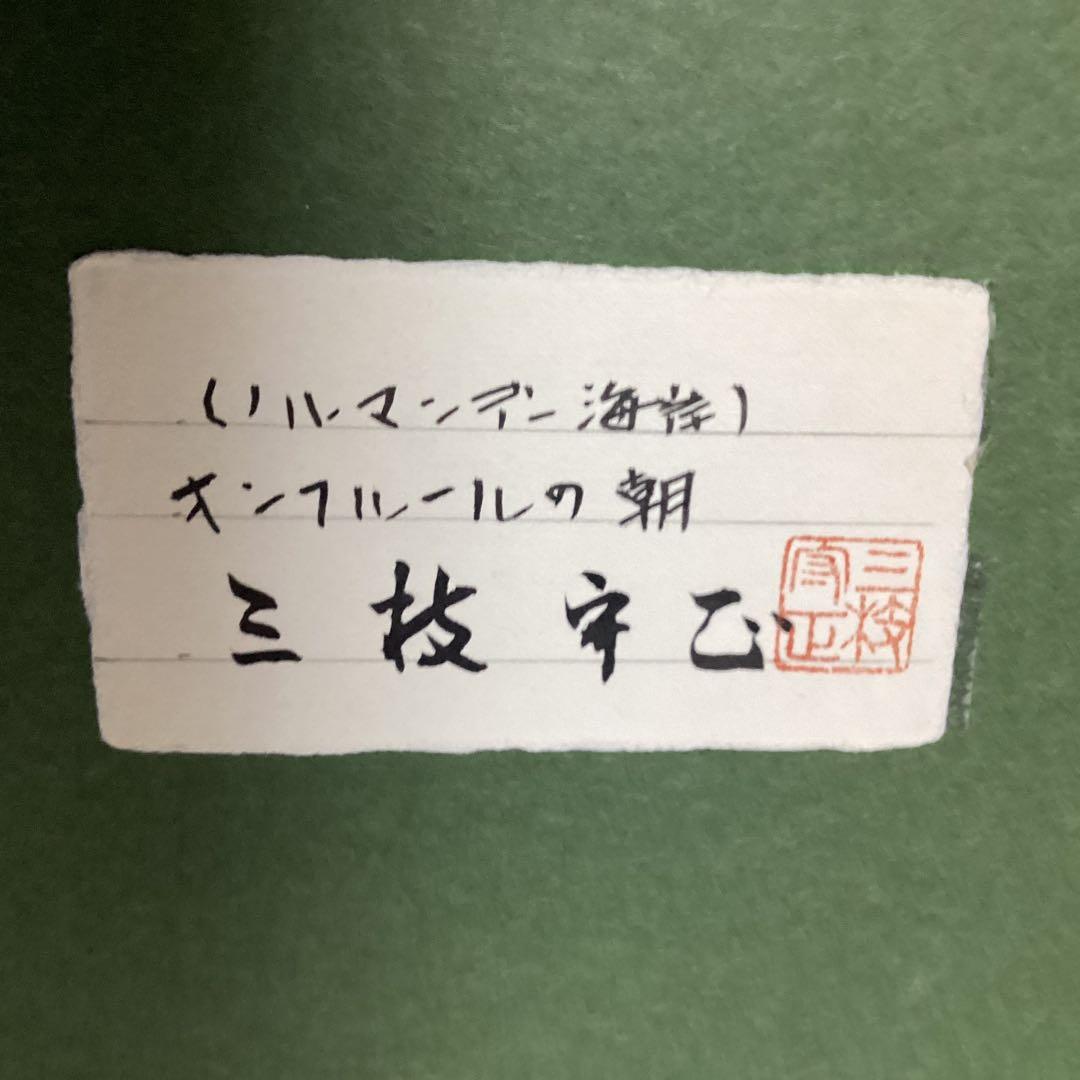 (ノルマンデー海岸)
オンフルールの朝
三枝守正
三枝
守正